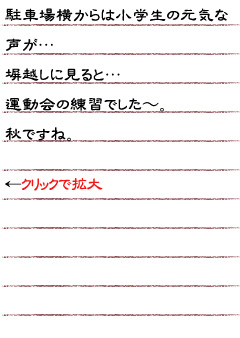 駐車場横からは小学生の元気な
声が…
塀越しに見ると…
運動会の練習でした～。
秋ですね。
←クリックで拡大